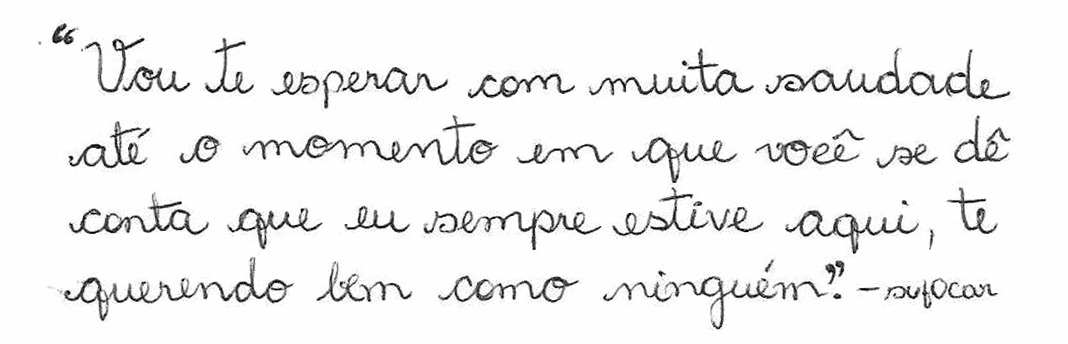 “Vou te esperar com muita saudade
até o momento em que você se dê
conta que eu sempre estive aqui, te
querendo bem como ninguém”. - sufocar